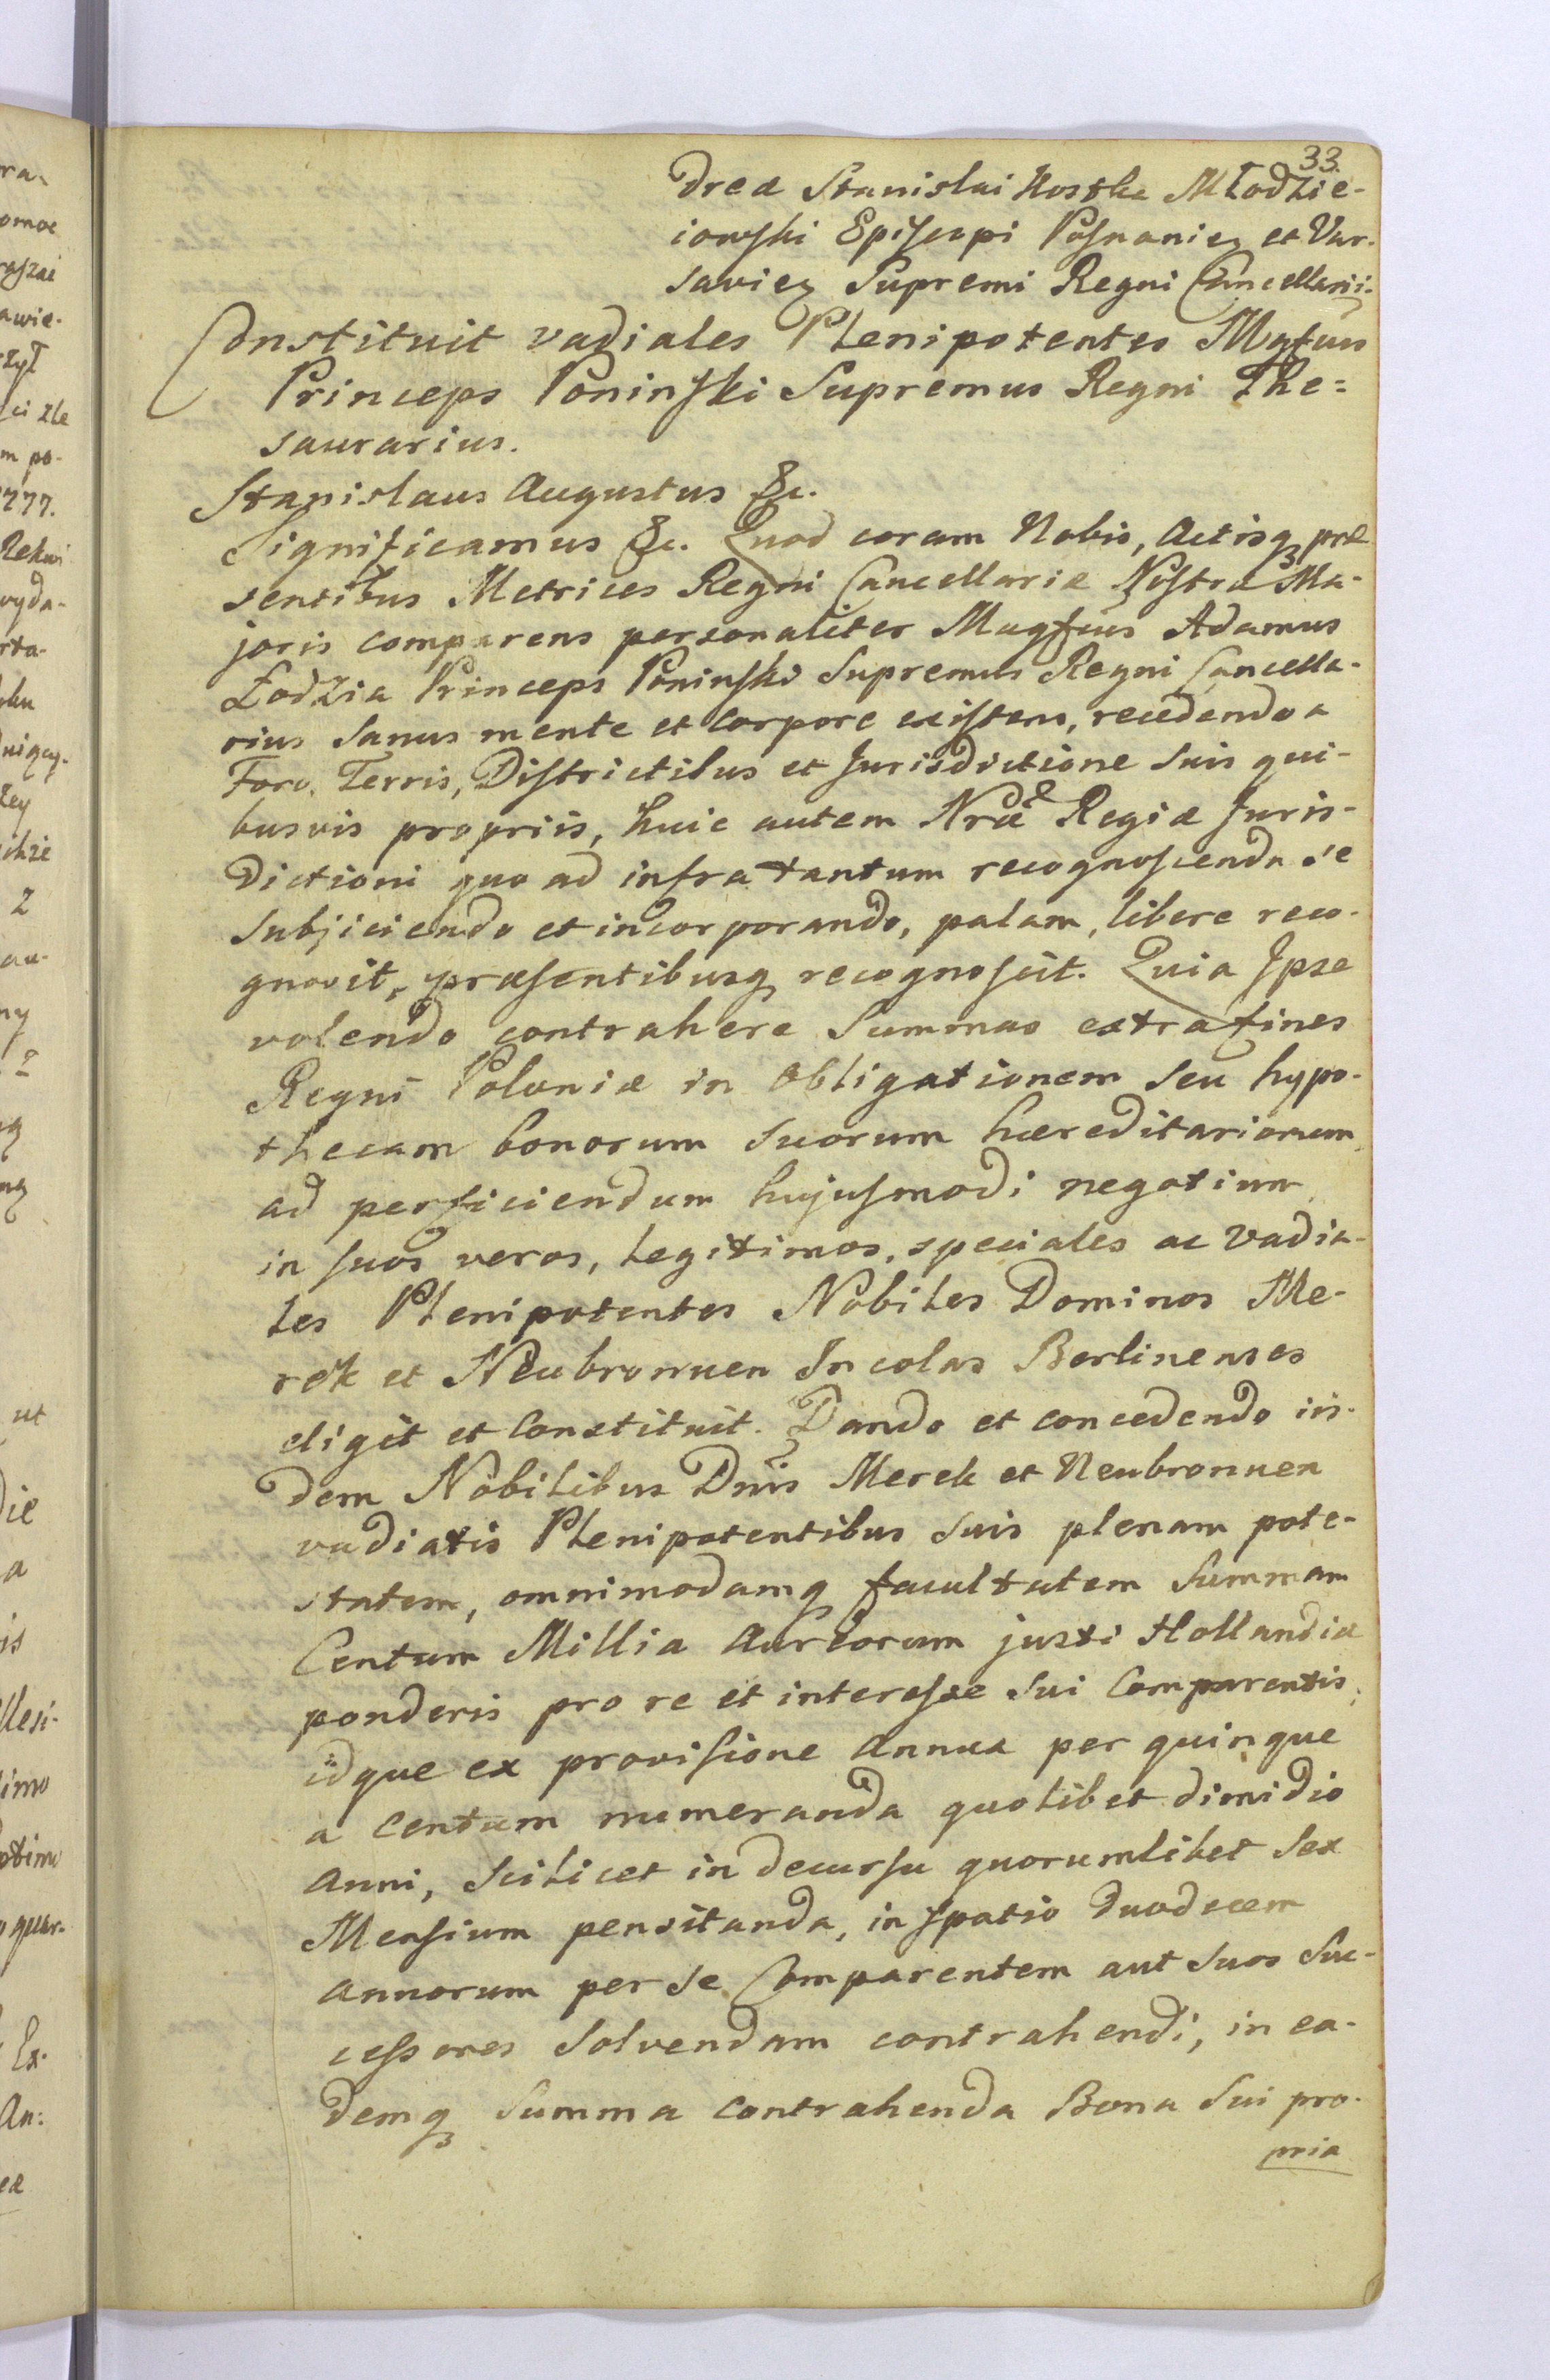 33.
dreæ Stanislai Kostka Młodzie-
iowski Episcopi Posnanien et Var-
savien Supremi Regni Cancellarii.
Constituit vadiales Plenipotentes Mgfcus
Princeps Poninski Supremus Regni The=
saurarius.
Stanislaus Augustus &c.
Significamus &c. Quod coram Nobis, Actisq præ
sentibus Metrices Regni Cancellariæ Nostræ Ma-
joris comparens personaliter Magfcus Adamus
Łodzia Princeps Poninski Supremus Regni Cancella-
rius sanus mente et corpore existens, recedendo a
Foro, Terris, Districtibus et Jurisdictione suis qui-
busvis propriis, huic autem Nræ Regiæ Juris-
dictioni quo ad infra tantum recognoscenda se
subjiciendo et incorporando, palam, libere reco-
gnovit, præsentibusq recognoscit. Quia Ipse
volendo contrahere Summas extra fines
Regni Poloniæ in obligationem seu hypo-
thecam bonorum suorum hæreditariorum
ad perficiendum hujusmodi negotium,
in suos veros, legitimos, speciales ac vadia-
les Plenipotentes Nobiles Dominos Me-
rek et Neubronnen Incolas Berlinenses
eligit et Constituit. Dando et concedendo iis-
dem Nobilibus Dnis Merek et Neubronnen
vadiatis Plenipotentibus suis plenam pote-
statem, omnimodamq facultatem Summam
Centum Millia Aureorum justi Hollandiæ
ponderis pro re et interesse sui Comparentis,
idque ex provisione annua per quinque
a centum numeranda quolibet dimidio
anni, scilicet in decursu quorumlibet sex
Mensium pensitanda, in spatio duodecem
annorum per se Comparentem aut suos suc-
cessores solvendam contrahendi, in ea-
demq summa contrahenda Bona sui pro-
pria